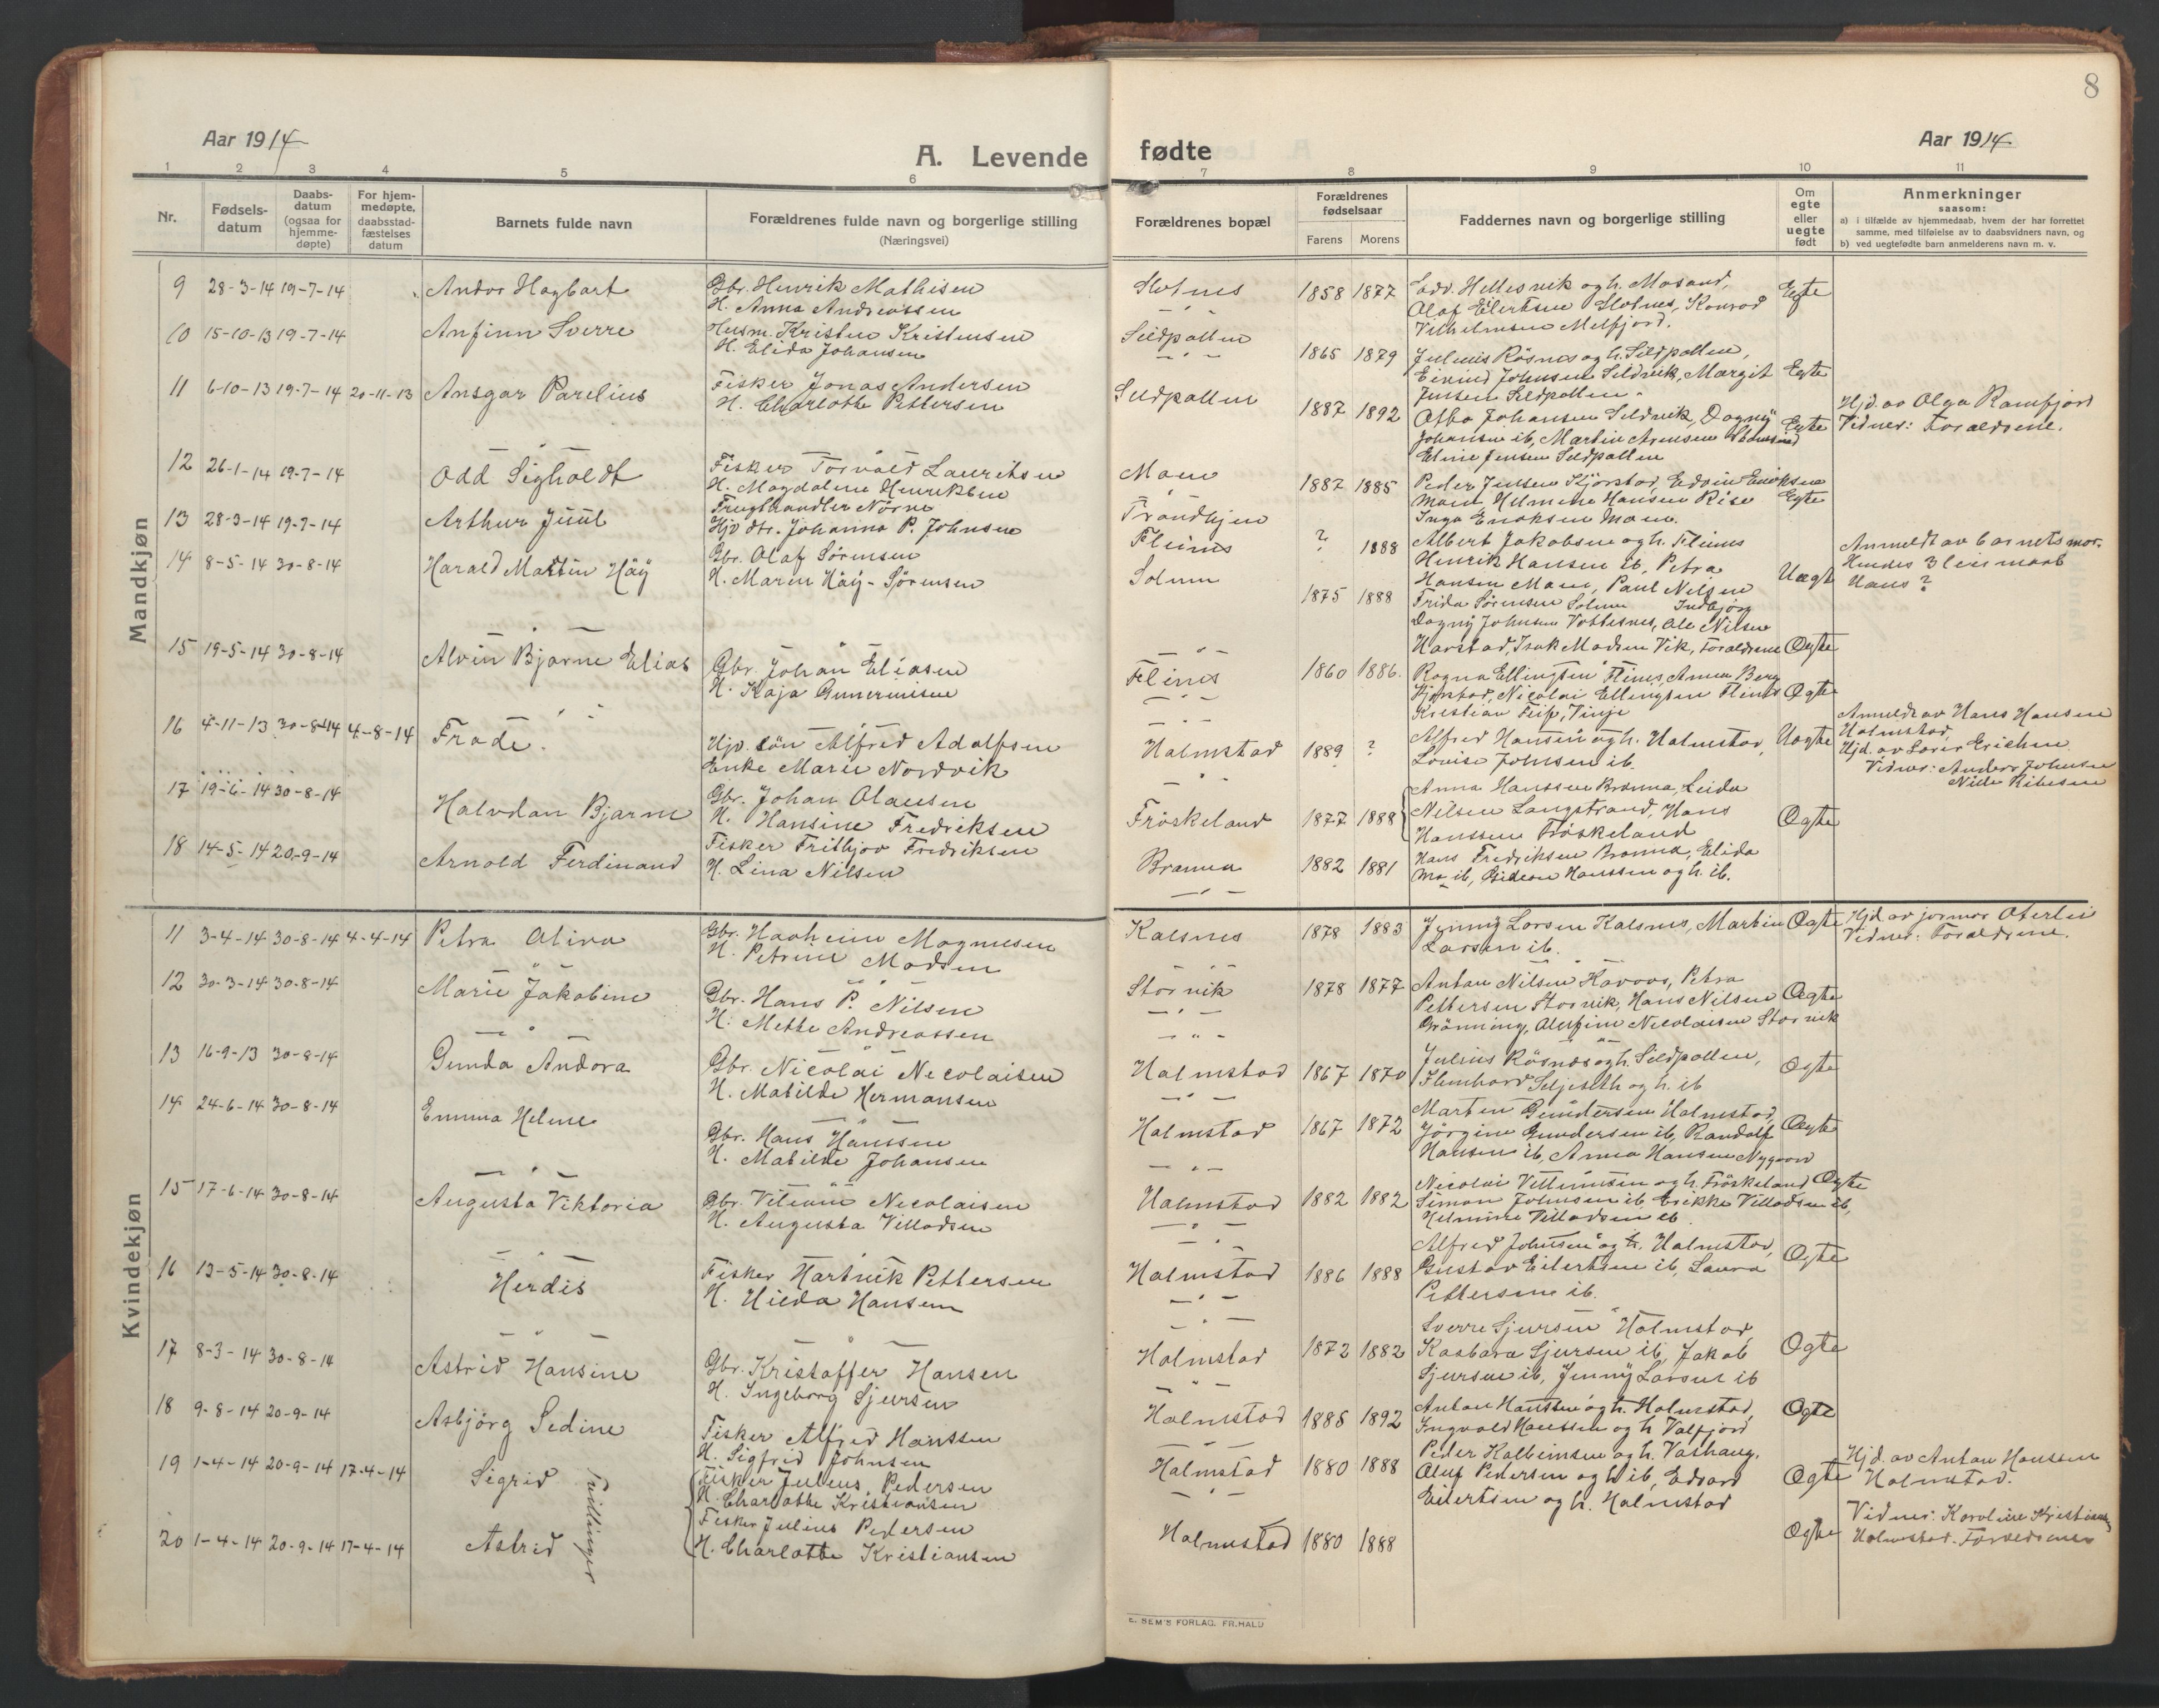 8
Aar 1914
A. Levende fødte
Aar 1914
1 2 3 4 5 6 7 8 9 10 11
Nr.
Fødsels-
datum
Daabs-
datum
(ogsaa for
hjemme-
døpte)
For hjem-
medøpte,
daabsstad-
fæstelses
datum
Barnets fulde navn
Forældrenes fulde navn og borgerlige stilling
(Næringsvei)
Forældrenes bopæl
Forældrenes
fødselsaar
Farens Morens
Faddernes navn og borgerlige stilling
Om
egte
eller
uegte
født
Anmerkninger
saasom:
a) i tilfælde av hjemmedaab, hvem der har forrettet
samme, med tilføielse av to daabsvidners navn, og
b) ved uegtefødte barn anmelderens navn m. v.
Mandkjøn
9 28-3-14 19-7-14 Andor Hagbart
Gbr. Henrik Mathisen
H. Anna Andreassen
Slotnes
1858 1877
Edv. Hellesvik og h. Masand,
Olaf Eilertsen Slotnes, Konrad
Vilhelmsen Melfjord.
Egte
10 15-10-13 19-7-14 Anfinn Sverre
Husm. Kristen Kristensen
H. Elida Johansen
Sildpollen
1865 1879
Julius Røsnes og h. Sildpollen,
Eivind Johnsen Sildvik, Margit
Jensen Sildpollen.
Egte
11 6-10-13 19-7-14 20-11-13 Ansgar Parelius
Fisker Jonas Andersen
H. Charlotte Pettersen
Sildpollen
1887 1892
Johansen Sildvik, Dagny
Johansen ib, Martin Arensen
Eline Jensen Sildpollen
Egte
Hjd. av Olga Ramfjord
Vidner: Foraldrene.
12 26-1-14 19-7-14 Odd Sigholdt
Fisker Torvald Lauritsen
H. Magdalene Henriksen
Maan
1887 1885
Peder Jensen Sjørstad, Edvin Eriksen
Maan, Helmine Hansen Rise
Inga Enoksen Maan.
Egte
13 28-3-14 19-7-14 Arthur Juul
Frugthandler Nørve
Hjv dtr. Johanna P. Johnsen
Trondhjem
Fleines
? 1888
Albert Jakobsen og h. Fleines
Henrik Hansen ib, Petra
Hansen Maan, Paul Nilsen
Uegte
Anmeldt av barnets mor.
Hendes 3 leiermaal
Hans ?
14 8-5-14 30-8-14 Harald Martin Häÿ
Gbr. Olaf Sørensen
H. Maren Häÿ-Sørensen
Solum
1875 1888
Frida Sørensen Solum Indbjörg
Dagny Johnsen Vottesnes, Ole Nilsen
Harstad, Isak Madsen Vik, Foraldrene Egte
15 19-5-14 30-8-14 Alvin Bjarne Elias
Gbr. Johan Eliasen
H. Kaja
Fleines
1860 1886.
Ragna Ellingsen Fleines, Anna Berg
Nicolai Ellingsen Fleines Egte
Kristian Vinje
16 4-11-13 30-8-14 4-8-14 Frode.
Hjv. sön Alfred Adolfsen
Enke Marie Nordvik
Halmstad
1889 ?
Alfred Hansen og h. Halmstad,
Louise Johnsen ib.
Uegte
Anmeldt av Hans Hansen
Halmstad
Hjd. av Erichsen
Vidner: Anders Johnsen
17 19-6-14 30-8-14 Halvdan Bjarne
Gbr. Johan Olausen
H. Hansine Fredriksen
Fröskeland
1877 1888
Anna Hanssen Bramna, Leida
Nilsen Langstrand, Hans
Hanssen Fröskeland
Egte
18 14-5-14 20-9-14 Arnold Ferdinand
Fisker Frithjov Fredriksen
H. Lina Nilsen
Bramna
1882 1881
Hans Fredriksen Bramna, Elida
Mo ib, Gideon Hanssen og h. ib.
Kvindekjøn
11 3-4-14 30-8-14 4-4-14 Petra Oliva
Gbr. Magnussen
H. Petrine Madsen
Kalsnes
1878 1883
Jenny Larsen Kalsnes, Martin
Larsen ib.
Egte
Hjd. av jormor Oterlei
Vidner: Foraldrene.
12 30-3-14 30-8-14 Marie Jakobine
Gbr. Hans P. Nilsen
H. Mette Andreassen
Storvik
1878 1877
Anton Nilsen Havoos, Petra
Pettersen Storvik, Hans Nilsen
Grönning, Nicolaisen Storvik
Egte
13 16-9-13 30-8-14 Gunda Andora
Gbr. Nicolai Nicolaisen
H. Matilde Hermansen
Halmstad
1867 1870
Julius Røsnes og h. Sildpollen,
Seljeseth og h. ib
Egte
14 24-6-14 30-8-14 Emma Helene
Gbr. Hans Hanssen
H. Matilde Johansen
Halmstad
1867 1872
Martin Gundersen Halmstad,
Jörgine Gundersen ib, Randolf
Hansen ib, Anna Hansen Nygaard
Egte
15 17-6-14 30-8-14 Augusta Viktoria
Gbr. Nicolaisen
H. Augusta Villadsen
Halmstad
1882 1882
Nicolai og h. Fröskeland Egte
Simon Johnsen ib, Erikke Villadsen ib,
Helmine Villadsen ib.
16 13-5-14 30-8-14 Herdis
Fisker Hartvik Pettersen
H. Hilda Hansen
Halmstad
1886 1888
Alfred Johnsen og h. Halmstad,
Gustav Eilertsen ib, Laura
Pettersen ib.
Egte
17 8-3-14 30-8-14 Astrid Hansine
Gbr. Kristoffer Hansen
H. Ingeborg Sjursen
Halmstad
1872 1882
Sverre Sjursen Halmstad,
Kasbara Sjursen ib, Jakob
Sjursen ib, Jenny Larsen ib
Egte
18 9-8-14 20-9-14 Asbjörg Sedine
Fisker Alfred Hanssen
H. Sigfrid Johnsen
Halmstad
1885 1892
Anton Hanssen og h. Halmstad,
Ingvald Hanssen og h Valfjord
Egte
19 1-4-14 20-9-14 17-4-14 Sigrid
Tvillinger
Fisker Julius Pedersen
H. Charlotte Kristiansen
Halmstad
1880 1888
Peder Kolbeinsen og h. Vashaug,
Oluf Pedersen og h ib, Edvard
Eilertsen og h. Halmstad
Egte
Hjd. av Anton Hanssen
Halmstad.
20 1-4-14 20-9-14 17-4-14 Astrid
Fisker Julius Pedersen
H. Charlotte Kristiansen
Halmstad
1880 1888
Egte
Vidner: Karoline Kristiansen
Halmstad. Foraldrene
E. SEM'S FORLAG, FR.HALD